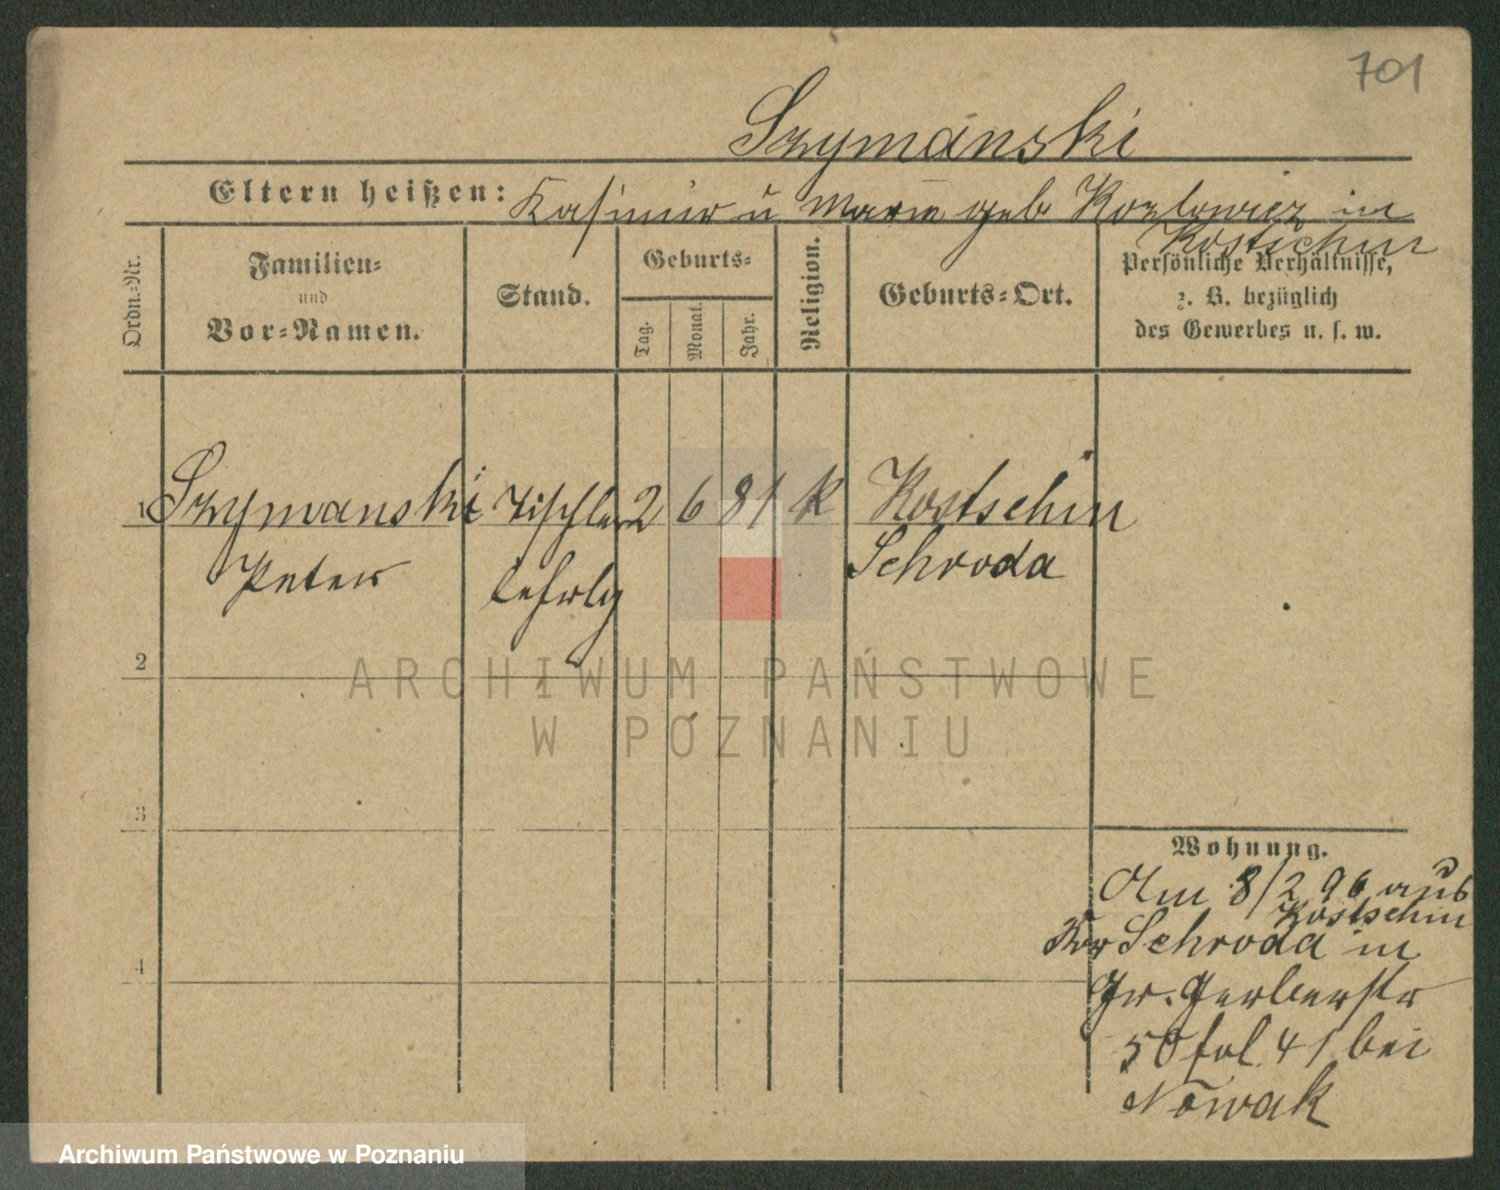 701
Szymanski
Eltern heißen: Kasimir u Marie geb Kozlowicz in
Kostschin
Ordn.-Nr.
Familien-
und
Vor-Namen.
Stand.
Geburts-
Tag.
Monat.
Jahr.
Religion.
Geburts-Ort.
Persönliche Verhältnisse,
z. B. bezüglich
des Gewerbes u. s. w.
1 Szymanski Tischler 2 6 81 k Kostschin
Peter lehrlg Schroda
2
3
4
Wohnung.
Am 8/2 96 aus
Kostschin
Kr Schroda in
Gr. Gerberstr
50 fol 41 bei
Nowak
ARCHIWUM PAŃSTWOWE
W POZNANIU
Archiwum Państwowe w Poznaniu